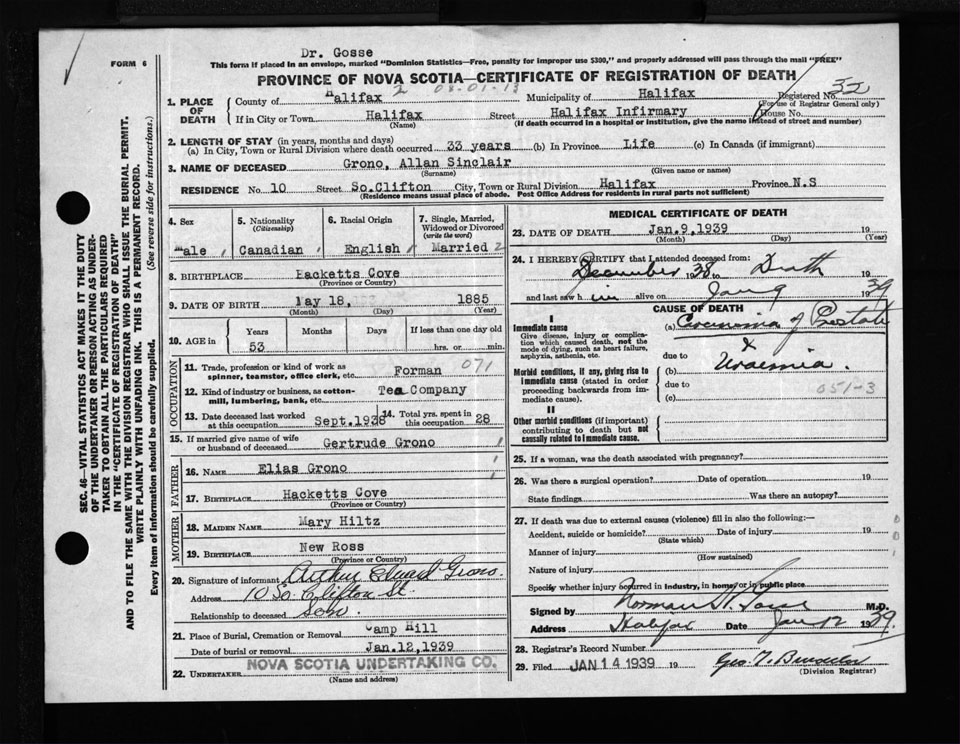 Dr. Gosse
FORM 6
This form if placed in an envelope, marked "Dominion Statistics—Free, penalty for improper use $300," and properly addressed will pass through the mail "FREE"
PROVINCE OF NOVA SCOTIA—CERTIFICATE OF REGISTRATION OF DEATH
32
1. PLACE OF DEATH County of Halifax 2 Municipality of Halifax Registered No.
(For use of Registrar General only)
If in City or Town Halifax Street Halifax Infirmary House No.
(Name) (If death occurred in a hospital or institution, give the name instead of street and number)
2. LENGTH OF STAY (in years, months and days)
(a) In City, Town or Rural Division where death occurred 33 years (b) In Province Life (c) In Canada (if immigrant)
3. NAME OF DECEASED Grono, Allan Sinclair
(Surname) (Given name or names)
RESIDENCE No. 10 Street So.Clifton City, Town or Rural Division Halifax Province N.S
(Residence means usual place of abode. Post Office Address for residents in rural parts not sufficient)
4. Sex
Male
5. Nationality
(Citizenship)
Canadian
6. Racial Origin
English
7. Single, Married, Widowed or Divorced
(write the word)
Married 2
8. BIRTHPLACE Hacketts Cove
(Province or Country)
9. DATE OF BIRTH May 18, 1885
(Month) (Day) (Year)
10. AGE in Years Months Days If less than one day old
53 hrs. or min.
OCCUPATION
11. Trade, profession or kind of work as spinner, teamster, office clerk, etc. Forman 071
12. Kind of industry or business, as cotton-mill, lumbering, bank, etc. Tea Company
13. Date deceased last worked at this occupation Sept.1938
14. Total yrs. spent in this occupation 28
15. If married give name of wife or husband of deceased Gertrude Grono
FATHER
16. NAME Elias Grono
17. BIRTHPLACE Hacketts Cove
(Province or Country)
MOTHER
18. MAIDEN NAME Mary Hiltz
19. BIRTHPLACE New Ross
(Province or Country)
20. Signature of informant Arthur Edward Grono
Address 10 So. Clifton St.
Relationship to deceased Son
21. Place of Burial, Cremation or Removal Camp Hill
Date of burial or removal Jan.12,1939
22. UNDERTAKER NOVA SCOTIA UNDERTAKING CO.
(Name and address)
MEDICAL CERTIFICATE OF DEATH
23. DATE OF DEATH Jan.9,1939 19
(Month) (Day) (Year)
24. I HEREBY CERTIFY that I attended deceased from:
December 1938 to Death 19
and last saw him alive on Jan 9 1939
CAUSE OF DEATH
I
Immediate cause
Give disease, injury or complication which caused death, not the mode of dying, such as heart failure, asphyxia, asthenia, etc.
Morbid conditions, if any, giving rise to immediate cause (stated in order proceeding backwards from immediate cause).
II
Other morbid conditions (if important) contributing to death but not causally related to immediate cause.
(a) Carcinoma of Prostate
due to &
(b) Uraemia.
due to
(c) 051-3
25. If a woman, was the death associated with pregnancy?
26. Was there a surgical operation? Date of operation 19
State findings Was there an autopsy?
27. If death was due to external causes (violence) fill in also the following:—
Accident, suicide or homicide? Date of injury 19
(State which)
Manner of injury
(How sustained)
Nature of injury
Specify whether injury occurred in industry, in home, or in public place
Signed by Norman H. Gosse M.D.
Address Halifax Date Jan 12 1939.
28. Registrar's Record Number
29. Filed JAN 14 1939 19
(Division Registrar)
SEC. 46—VITAL STATISTICS ACT MAKES IT THE DUTY
OF THE UNDERTAKER OR PERSON ACTING AS UNDER-
TAKER TO OBTAIN ALL THE PARTICULARS REQUIRED
IN THE "CERTIFICATE OF REGISTRATION OF DEATH"
AND TO FILE THE SAME WITH THE DIVISION REGISTRAR WHO SHALL ISSUE THE BURIAL PERMIT.
WRITE PLAINLY WITH UNFADING INK. THIS IS A PERMANENT RECORD.
Every item of information should be carefully supplied. (See reverse side for instructions.)